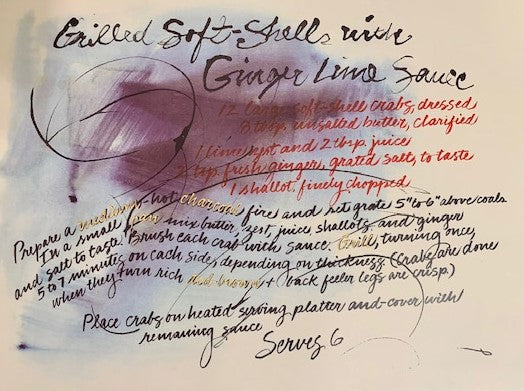 Grilled Soft-Shells with
Ginger Lime Sauce
12 large soft-shell crabs, dressed
8 tbsp. unsalted butter, clarified
1 lime zest and 2 tbsp. juice
2 tsp. fresh ginger, grated salt, to taste
1 shallot, finely chopped
Prepare a medium-hot charcoal fire and set grate 5" to 6" above coals
In a small pan mix butter, zest, juice, shallots, and ginger
and salt to taste. Brush each crab with sauce. Grill, turning once,
5 to 7 minutes on each side, depending on thickness. (Crabs are done
when they turn rich red brown + back feeler legs are crisp.)
Place crabs on heated serving platter and cover with
remaining sauce
Serves 6